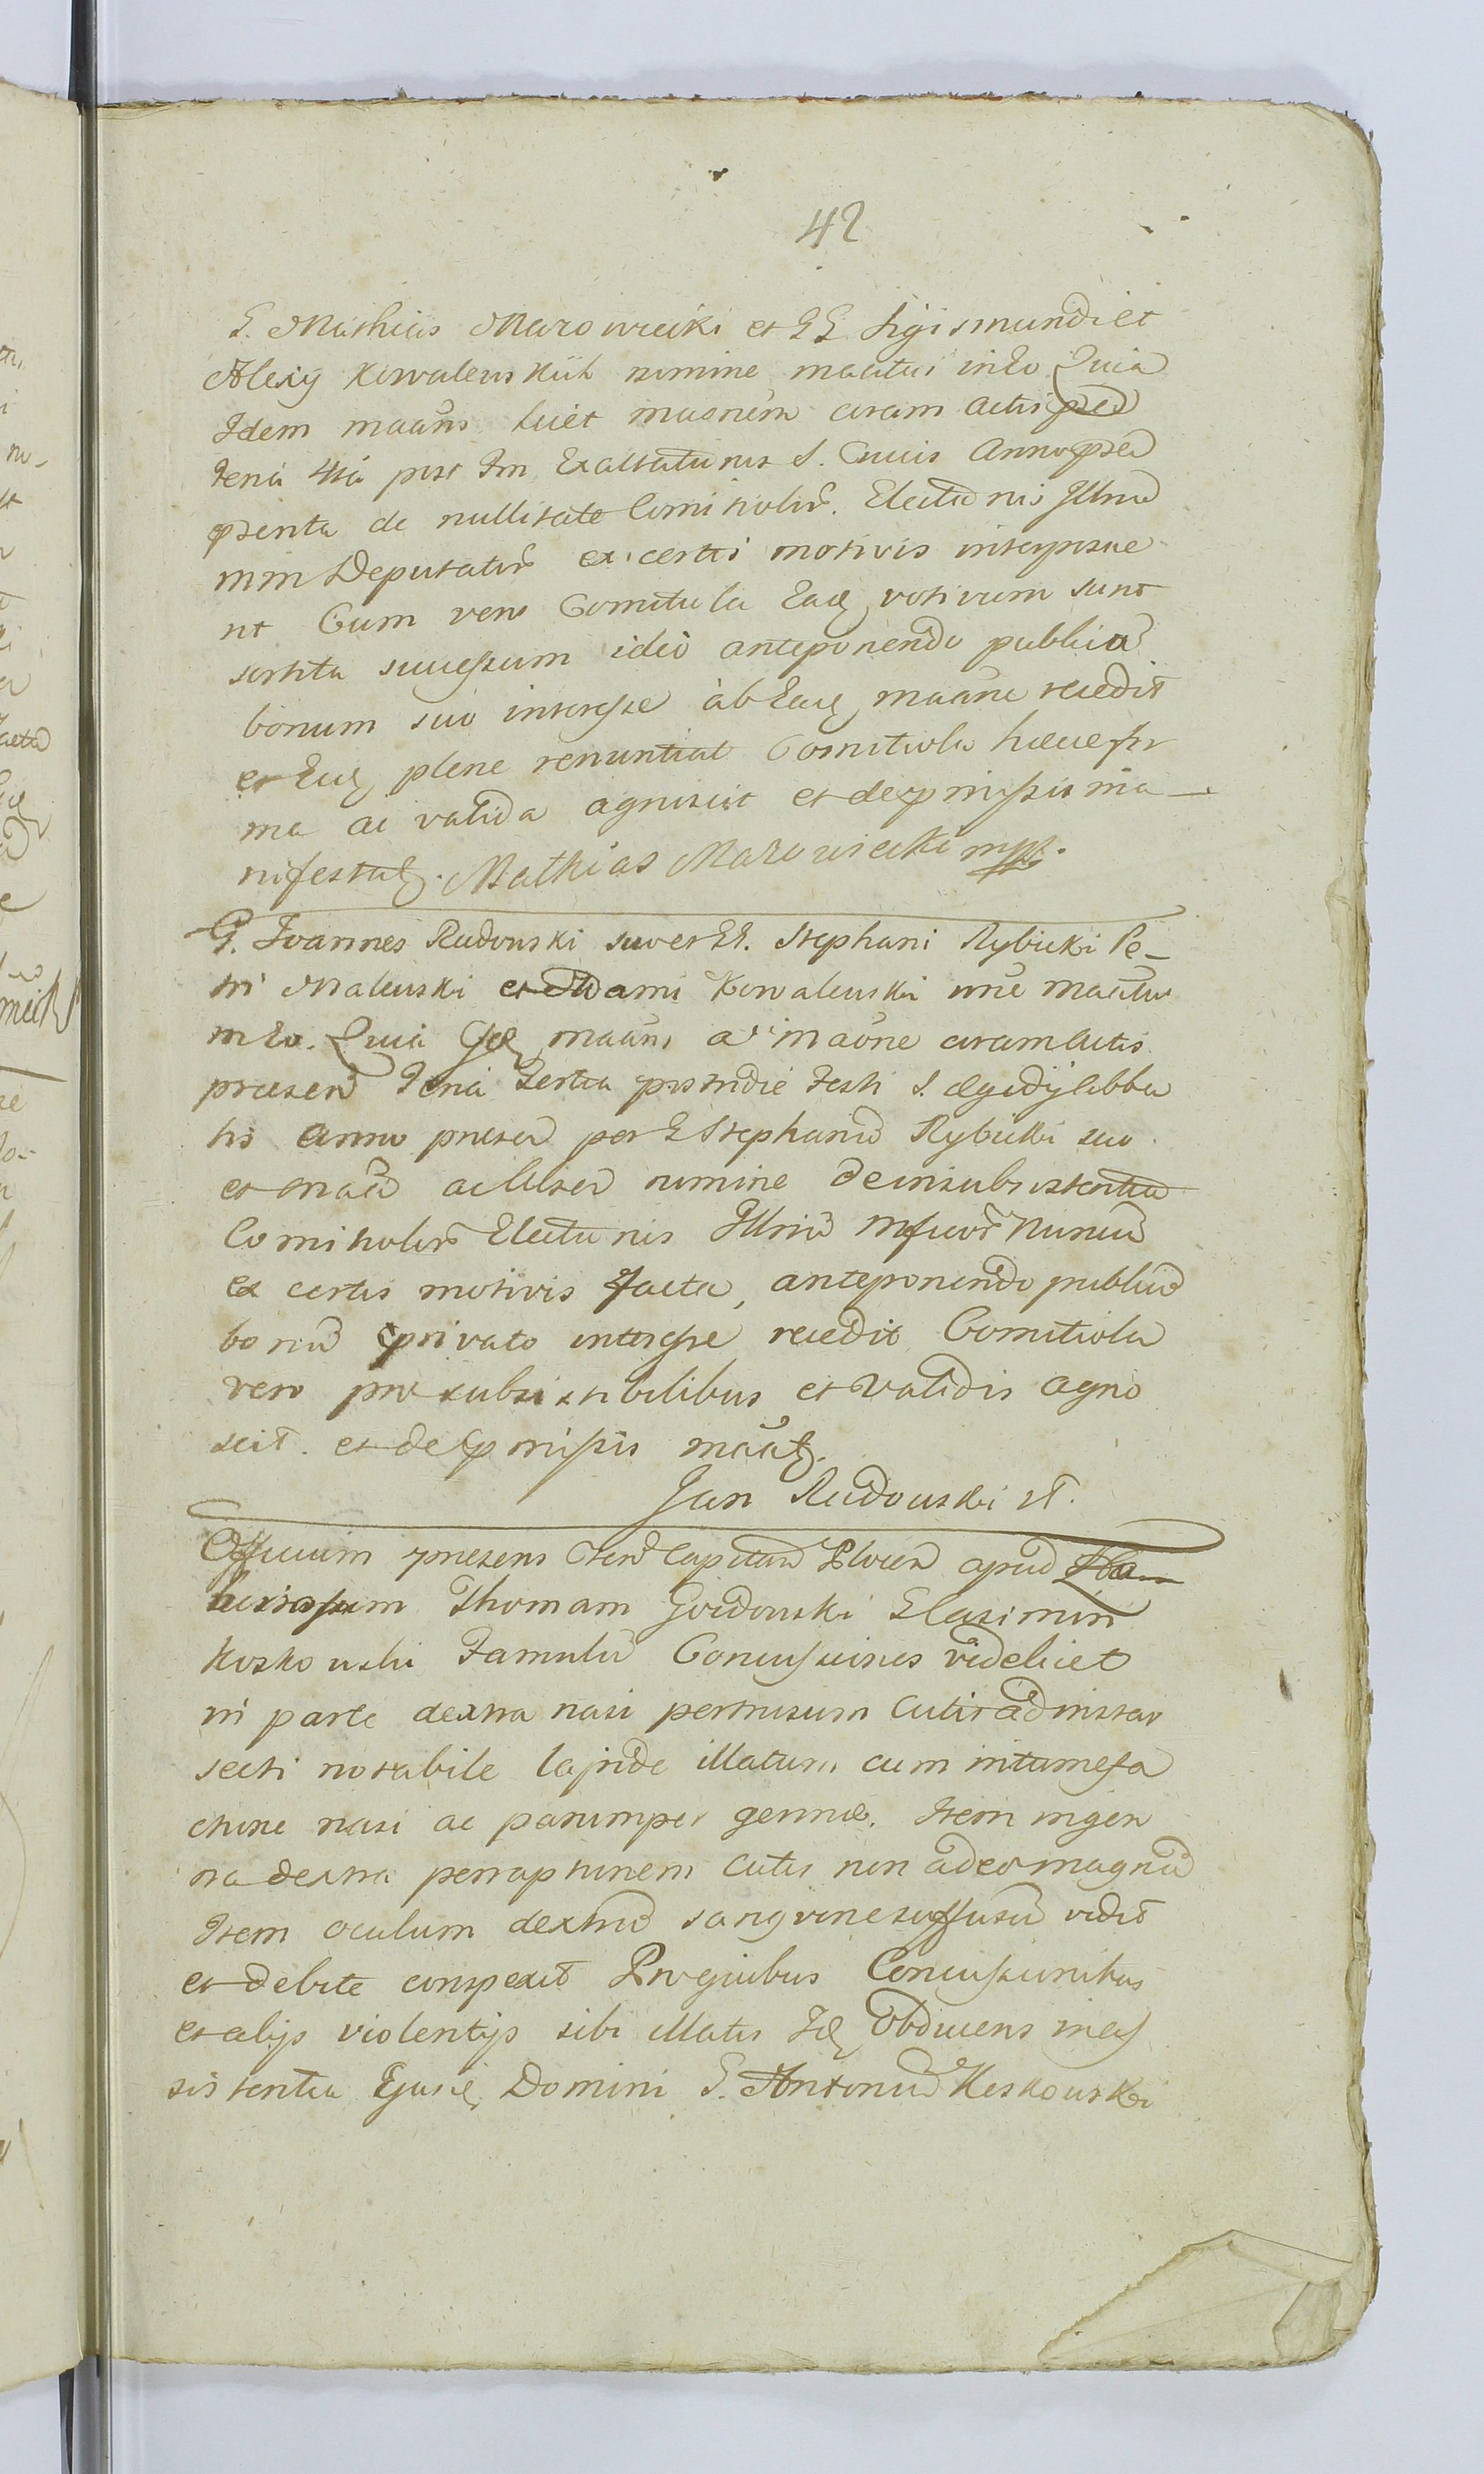 42
G. Mathias Mazowiecki et GG Sigismundi et
Alexy Kowalewskich nomine maatus in Eo Quia
Idem maans licet maonem coram Actis præs
Feria 4ta post Fm Exaltationis S. Crucis Anno præs
præsenta de nullitate Comitiolor. Electionis Illmor
mm Deputator ex certis motivis interposue
rit Cum vero Comitiola Eaq votivum sunt
sortita successum ideo anteponendo publicu
bonum suo interesse ab Eaq maone recedit
et Eaq plene renuntiat Comitiola hæcce fir
ma ac valida agnoscit et de præmissis ma
nifestatq. Mathias Mazowiecki mpp.
G. Joannes Rudowski suo et GG. Stephani Rybicki Pe-
tri Malewski et Adami Kowalewski nne maatus
in Eo. Quia Idq maans a maone coram Actis
præsen Feria Tertia postridie Festi S. Ægidij Abba
tis anno præsen per G Stephanu Rybicki suo
et maan ac alior nomine de insubsistentia
Comitiolor Electionis Illmor Mficor Nuncior
ex certis motivis facta, anteponendo publicu
bonu privato interesse recedit Comitiola
vero pro subsistibilibus et validis agno
scit. et de præmissis maatq.
Jan Rudowski st.
Officium præsens Cten Capitan Plocen apud
Thomam Goidowski G Casimiri
Koskowski Famulu Concussiones videlicet
in parte dextra nasi pertrusum cutis ad instar
secti notabile lapide illatum cum intumefa
ctione nasi ac parumper genuæ. Item in gen
na dextra perraptionem cutis non adeo magna
Item oculum dextru sangvine suffusu vidit
et debite conspexit Pro quibus Concussionibus
et alijs violentijs sibi illatis Idq Obducens in as
sistentia Ejusdq Domini G. Antoniu Koskowski